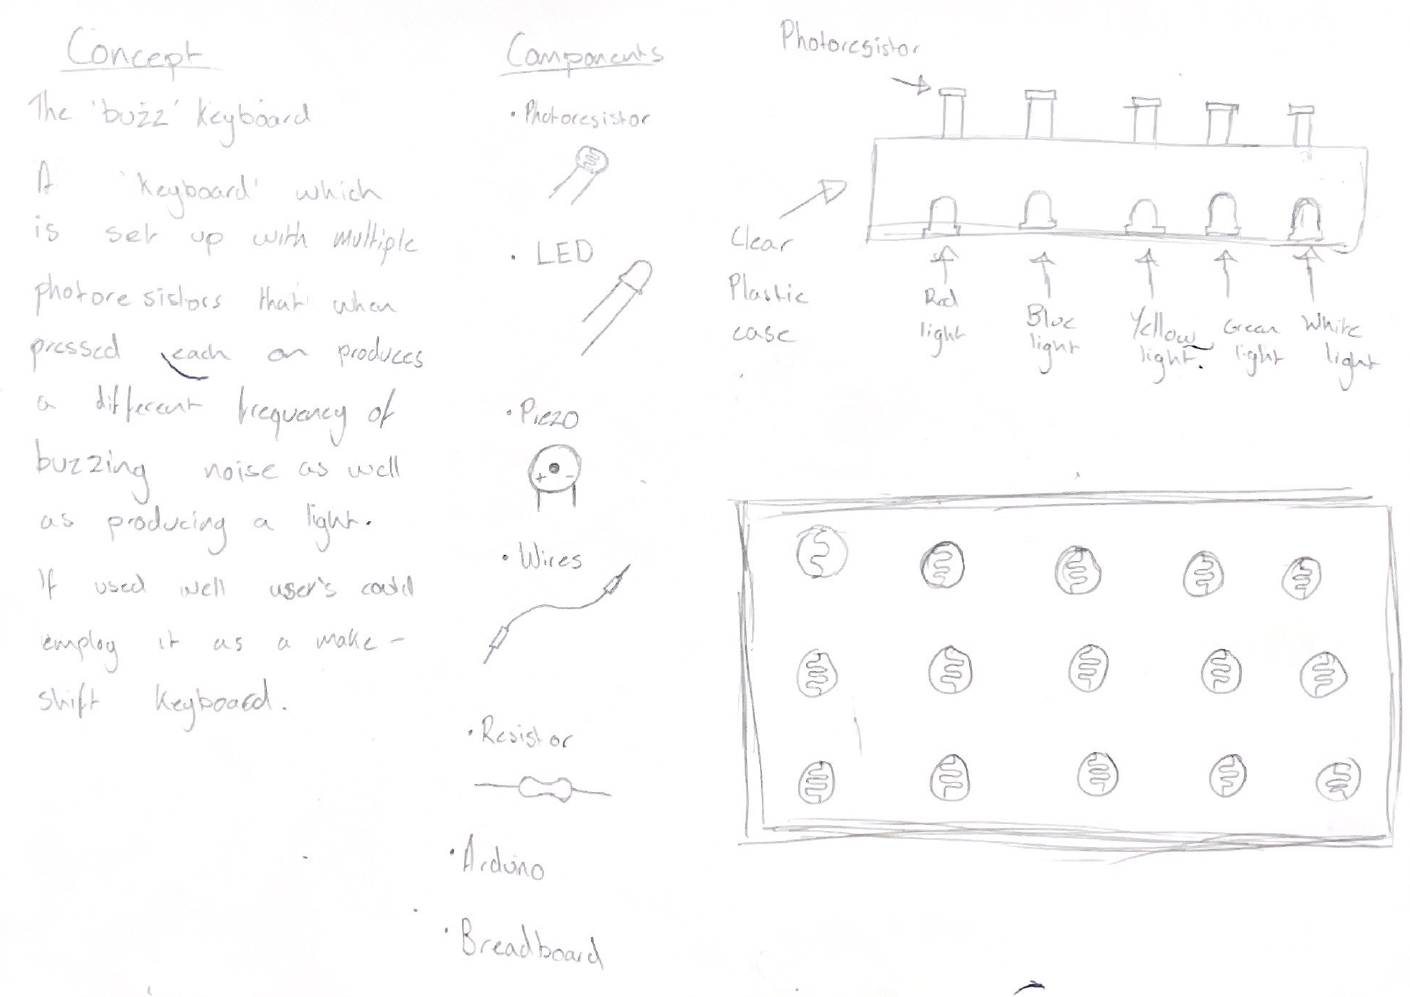 Concept
The 'buzz' Keyboard
A 'Keyboard' which
is set up with multiple
photoresistors that when
pressed each on produces
a different frequency of
buzzing noise as well
as producing a light.
If used well user's could
employ it as a make-
shift Keyboard.
Components
• Photoresistor
• LED
• Piezo
+ -
• Wires
• Resistor
• Arduino
• Breadboard
Photoresistor
Clear
Plastic
case
Red
light
Blue
light
Yellow
light.
Green
light
White
light